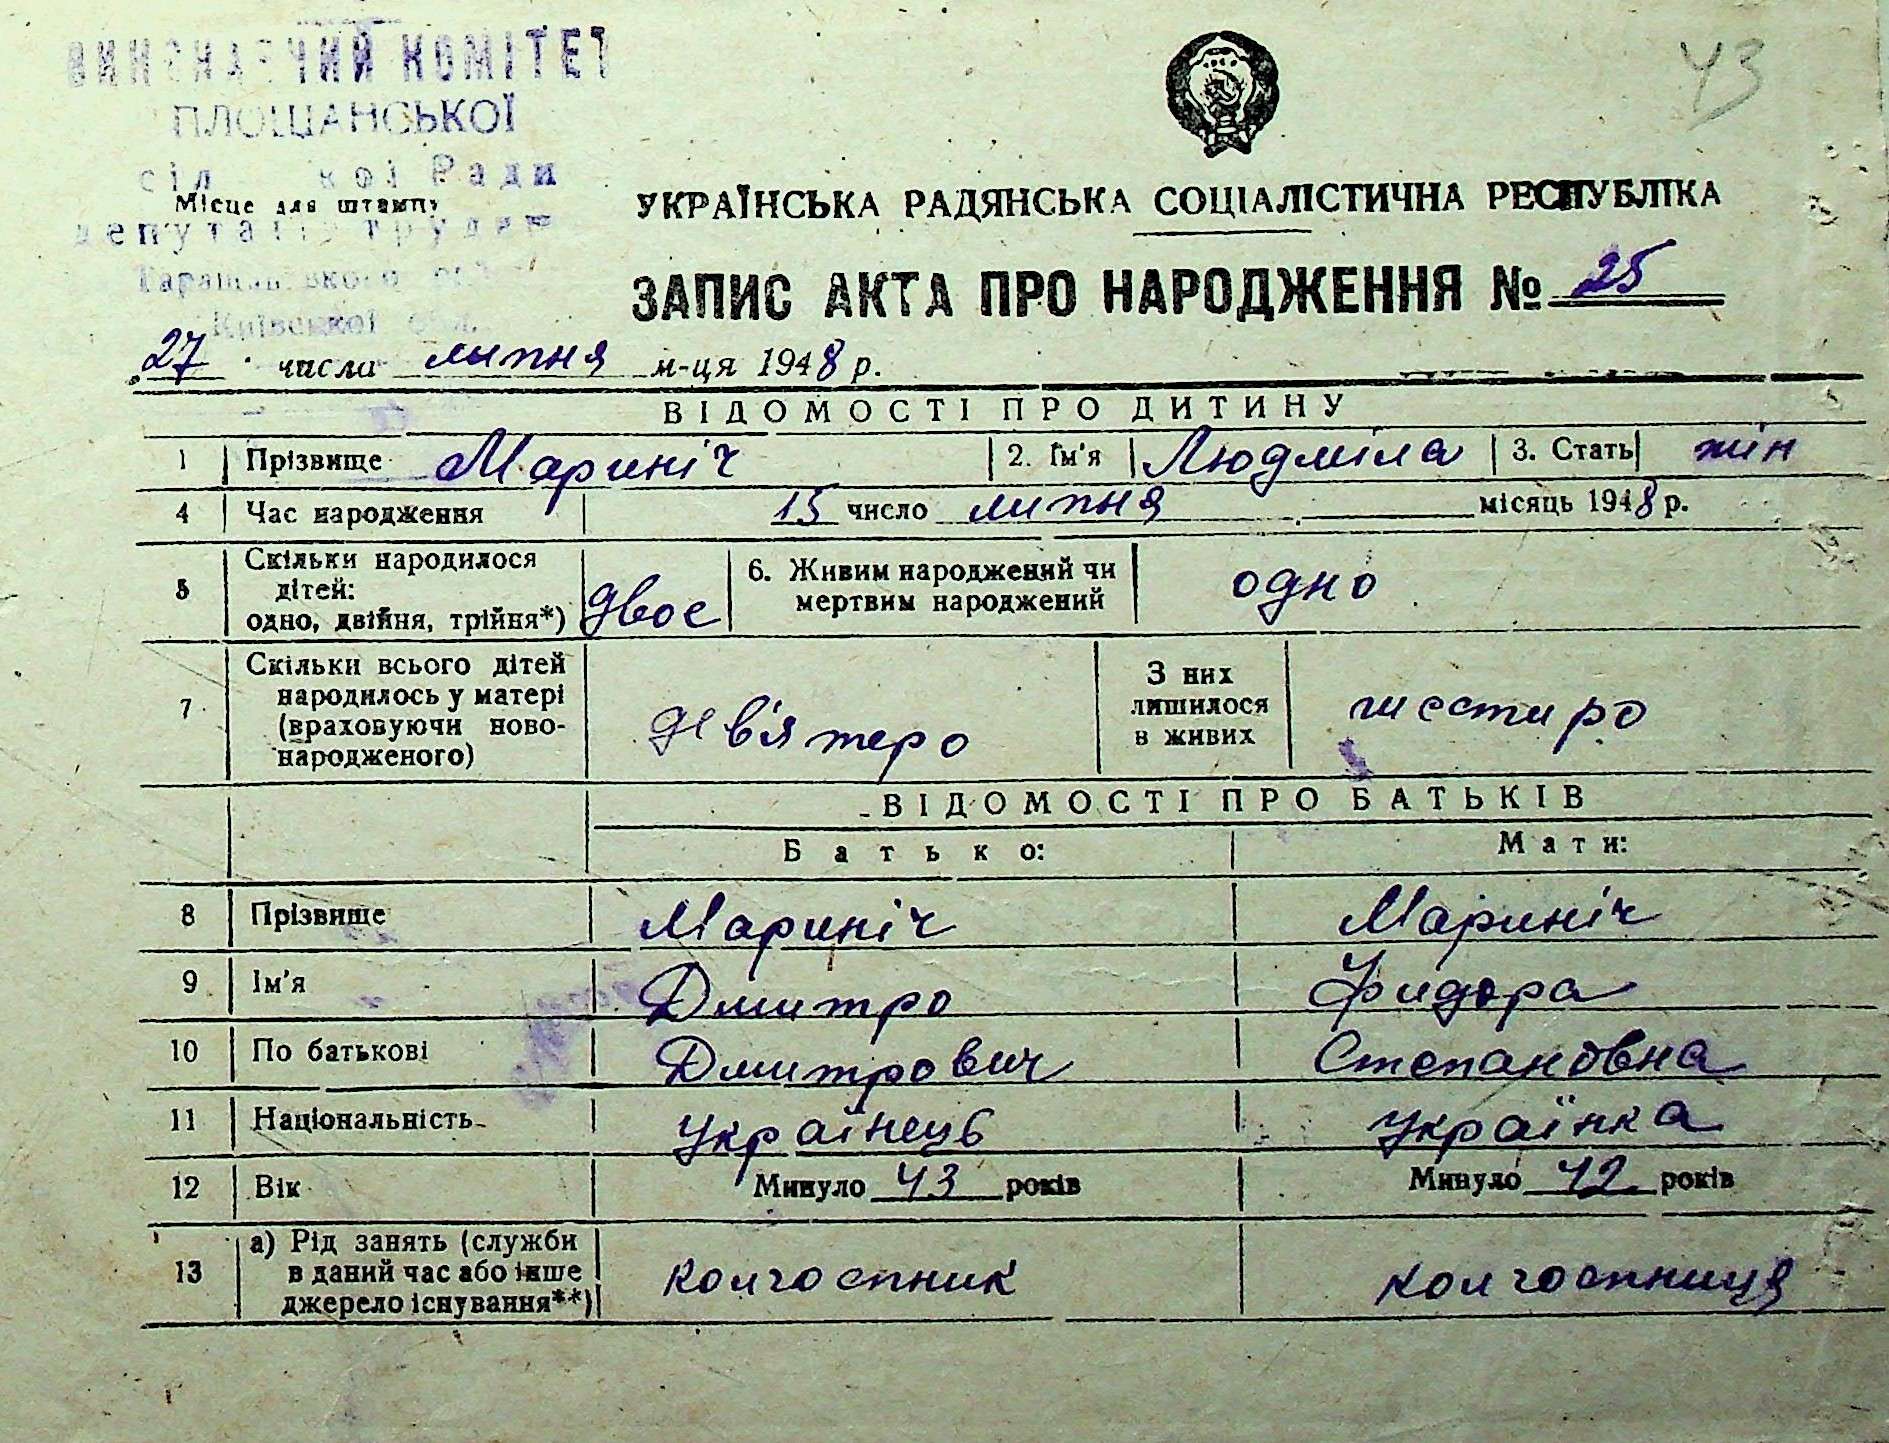 43
ВИКОНАВЧИЙ КОМІТЕТ
ПЛОЩАНСЬКОЇ
сільської Ради
Місце для штампу
депутатів трудящ
Таращанського
Київської обл.
УКРАЇНСЬКА РАДЯНСЬКА СОЦІАЛІСТИЧНА РЕСПУБЛІКА
ЗАПИС АКТА ПРО НАРОДЖЕННЯ № 25
27 числа липня м-ця 1948 р.
ВІДОМОСТІ ПРО ДИТИНУ
1 Прізвище Мариніч 2. Ім'я Людміла 3. Стать жін
4 Час народження 15 число липня місяць 1948 р.
5 Скільки народилося дітей: одно, двійня, трійня*) двоє 6. Живим народжений чи мертвим народжений одно
7 Скільки всього дітей народилось у матері (враховуючи ново-народженого) дев'ятеро З них лишилося в живих шестиро
ВІДОМОСТІ ПРО БАТЬКІВ
Батько: Мати:
8 Прізвище Мариніч Мариніч
9 Ім'я Дмитро Фидора
10 По батькові Дмитрович Степановна
11 Національність Українець Українка
12 Вік Минуло 43 років Минуло 42 років
13 а) Рід занять (служби в даний час або інше джерело існування**) колгоспник колгоспниця